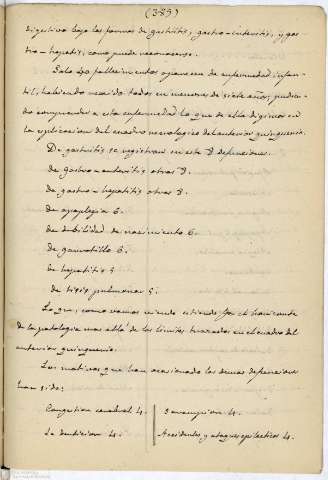 (389)
digestivo bajo las formas de gastritis, gastro-enteritis, y gas-
tro-hepatitis, como puede reconocerse.
Solo 40 fallecimientos aparecen de enfermedad infan-
til, habiendo recaido todos en menores de siete años, pudien-
do comprender a esta enfermedad lo que de ella digimos en
la esplicacion del cuadro necrologico del anterior quinquenio.
De gastritis se registran en este 8 defunciones.
de gastro-enteritis otras 8.
de gastro-hepatitis otras 8.
de apoplegia 6.
de debilidad de nacimiento 6.
de garrotillo 6.
de hepatitis 5
de tisis pulmonar 5.
como vamos viendo estiende el horizonte
de la patologia mas allá de los limites trazados en el cuadro del
anterior quinquenio.
Los motivos que han ocasionado las demas defunciones
han sido:
Congestion cerebral 4. Sarampion 4.
La denticion 4. Accidentes, y ataques epilecticos 4.